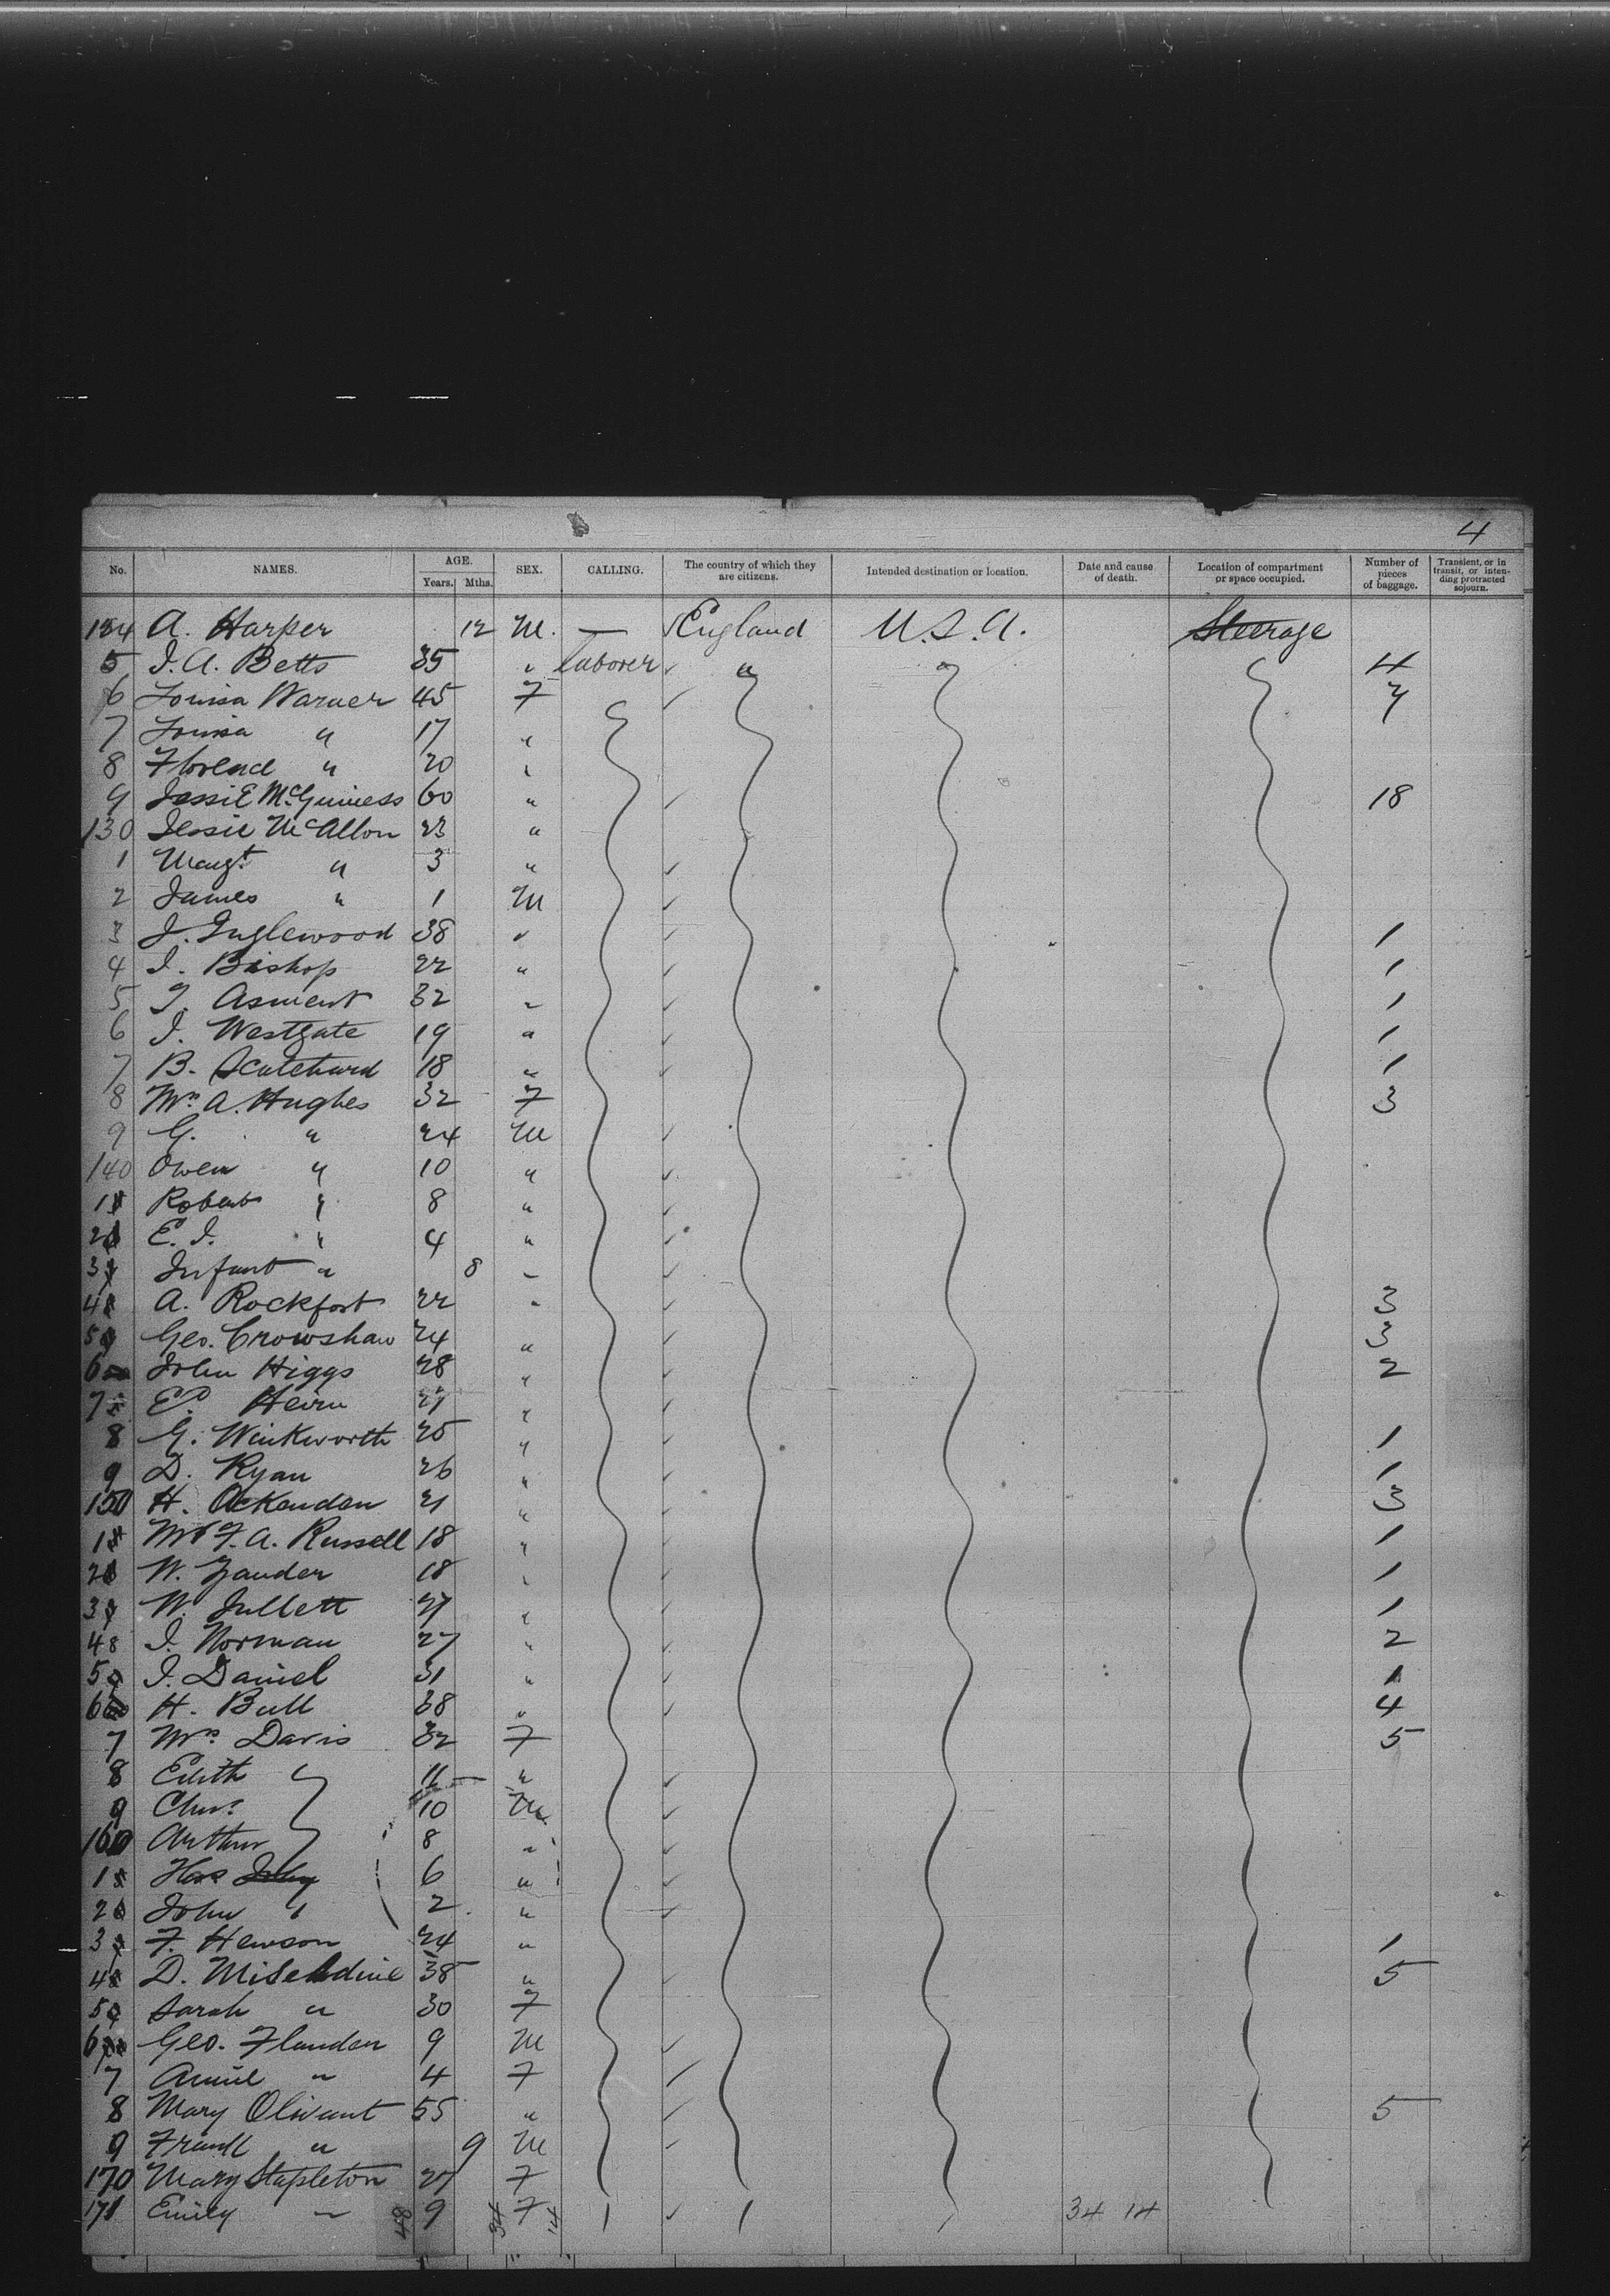 4
No. NAMES. AGE. Years. Mths. SEX. CALLING. The country of which they are citizens. Intended destination or location. Date and cause of death. Location of compartment or space occupied. Number of pieces of baggage. Transient, or in transit, or intending protracted sojourn.
124 A. Harper 12 M. — England U.S.A. Steerage
5 J. A. Betts 35 " laborer " " 4
6 Louisa Warner 45 F 7
7 Louisa " 17 "
8 Florence " 20 "
9 Jessie McGuiness 60 " 18
130 Jessie McAllon 23 "
1 Margt " 3 "
2 James " 1 M
3 J. Inglewood 38 " 1
4 J. Bishop 22 " 1
5 J. Asment 32 " 1
6 J. Westgate 19 " 1
7 B. Scatchard 18 " 1
8 Mrs A. Hughes 32 F 3
9 G. " 24 M
140 Owen " 10 "
1 Robert " 8 "
2 E. J. " 4 "
3 Infant " 8 "
4 A. Rockfort 22 " 3
5 Geo. Crowshaw 24 " 3
6 John Higgs 28 " 2
7 E.P. 27 "
8 G. Winkworth 25 " 1
9 D. Ryan 26 " 1
150 H. Ackenden 21 " 3
1 F. A. Russell 18 " 1
2 W. 18 " 1
3 W. Jullett 27 " 1
4 J. Norman 27 " 2
5 J. Daniel 31 " 1
6 H. Bull 38 " 4
7 Mrs Davis 32 F 5
8 Edith 11 "
9 Chas 10 M
160 Arthur 8 "
1 6 "
2 John " 2 "
3 F. Hewson 24 " 1
4 D. Miseldine 38 " 5
5 Sarah " 30 F
6 Geo. Flanden 9 M
7 Annie " 4 F
8 Mary Olivant 55 " 5
9 Frank " 9 M
170 Mary Stapleton 27 F
171 Emily " 48 9 34 F 14 34 14